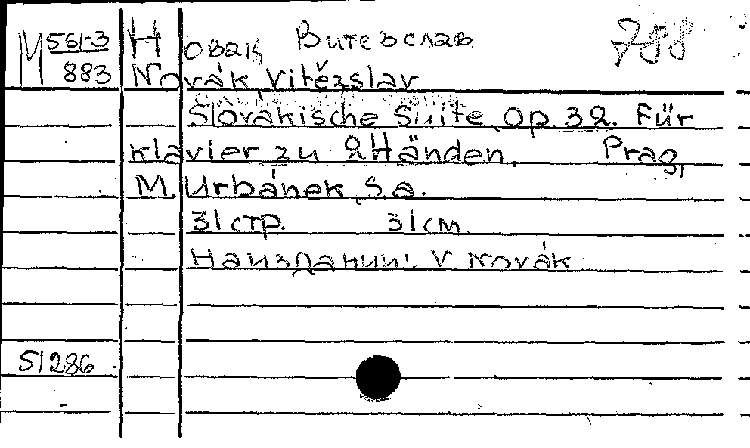 М 561-3 Новак Витезслав 788
883 Novák, Vítězslav
Slovakische Suite, op. 32. Für
klavier zu 2 Händen. Prag,
M. Urbánek, s.a.
31 стр. 31 см.
На издании: V Novák
51286